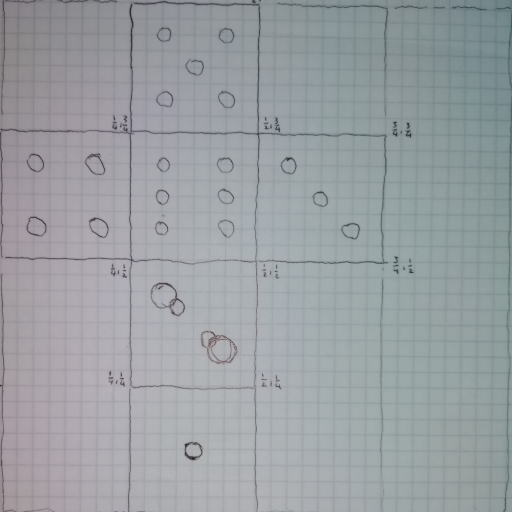 ¼; ¾ ½; ¾ ¾; ¾
¼; ½ ½; ½ ¾; ½
¼; ¼ ½; ¼